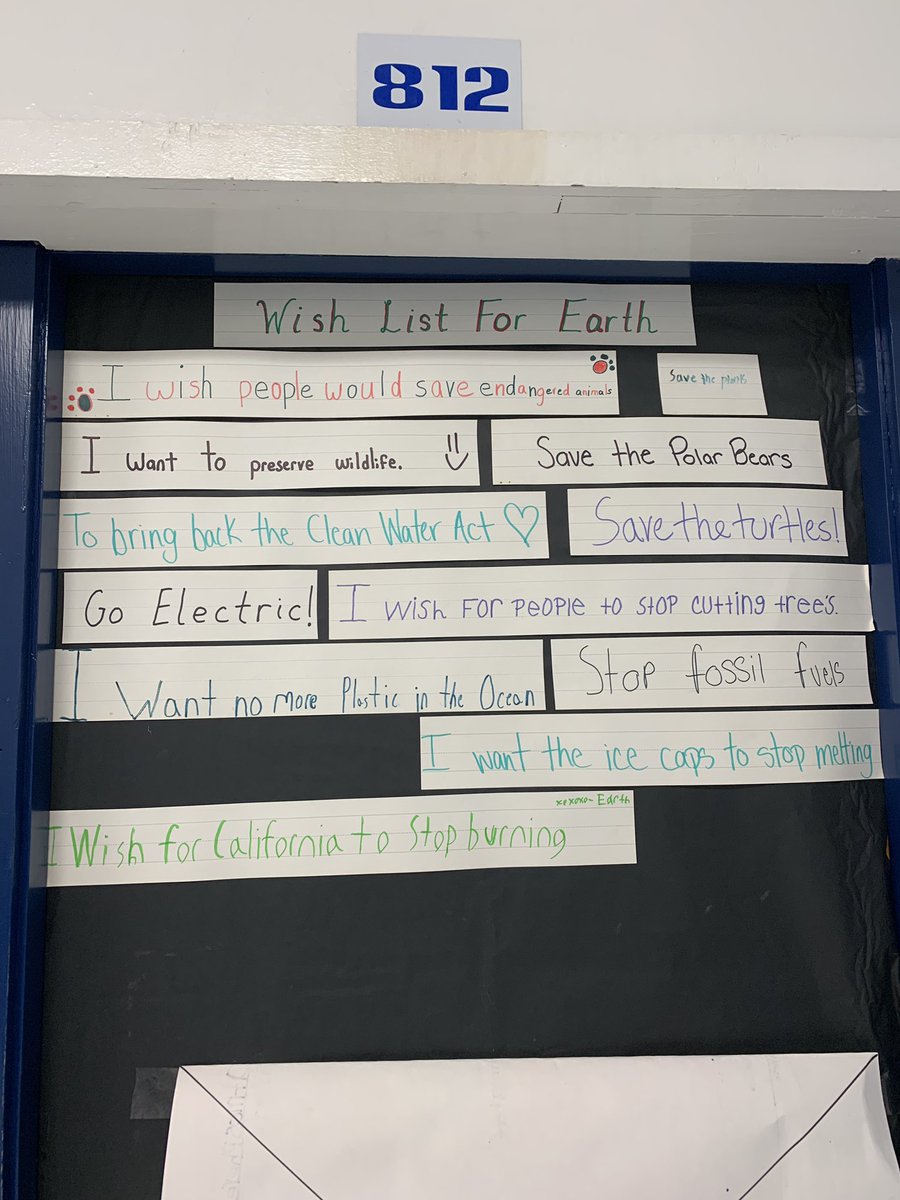 812
Wish List For Earth
I wish people would save endangered animals
Save the plants
I want to preserve wildlife.
Save the Polar Bears
To bring back the Clean Water Act
Save the turtles!
Go Electric!
I WISH FOR PEOPLE to STOP cutting tree's.
I Want no more Plastic in the Ocean
Stop fossil fuels
I want the ice caps to stop melting
xoxoxo- Earth
I Wish for California to Stop burning